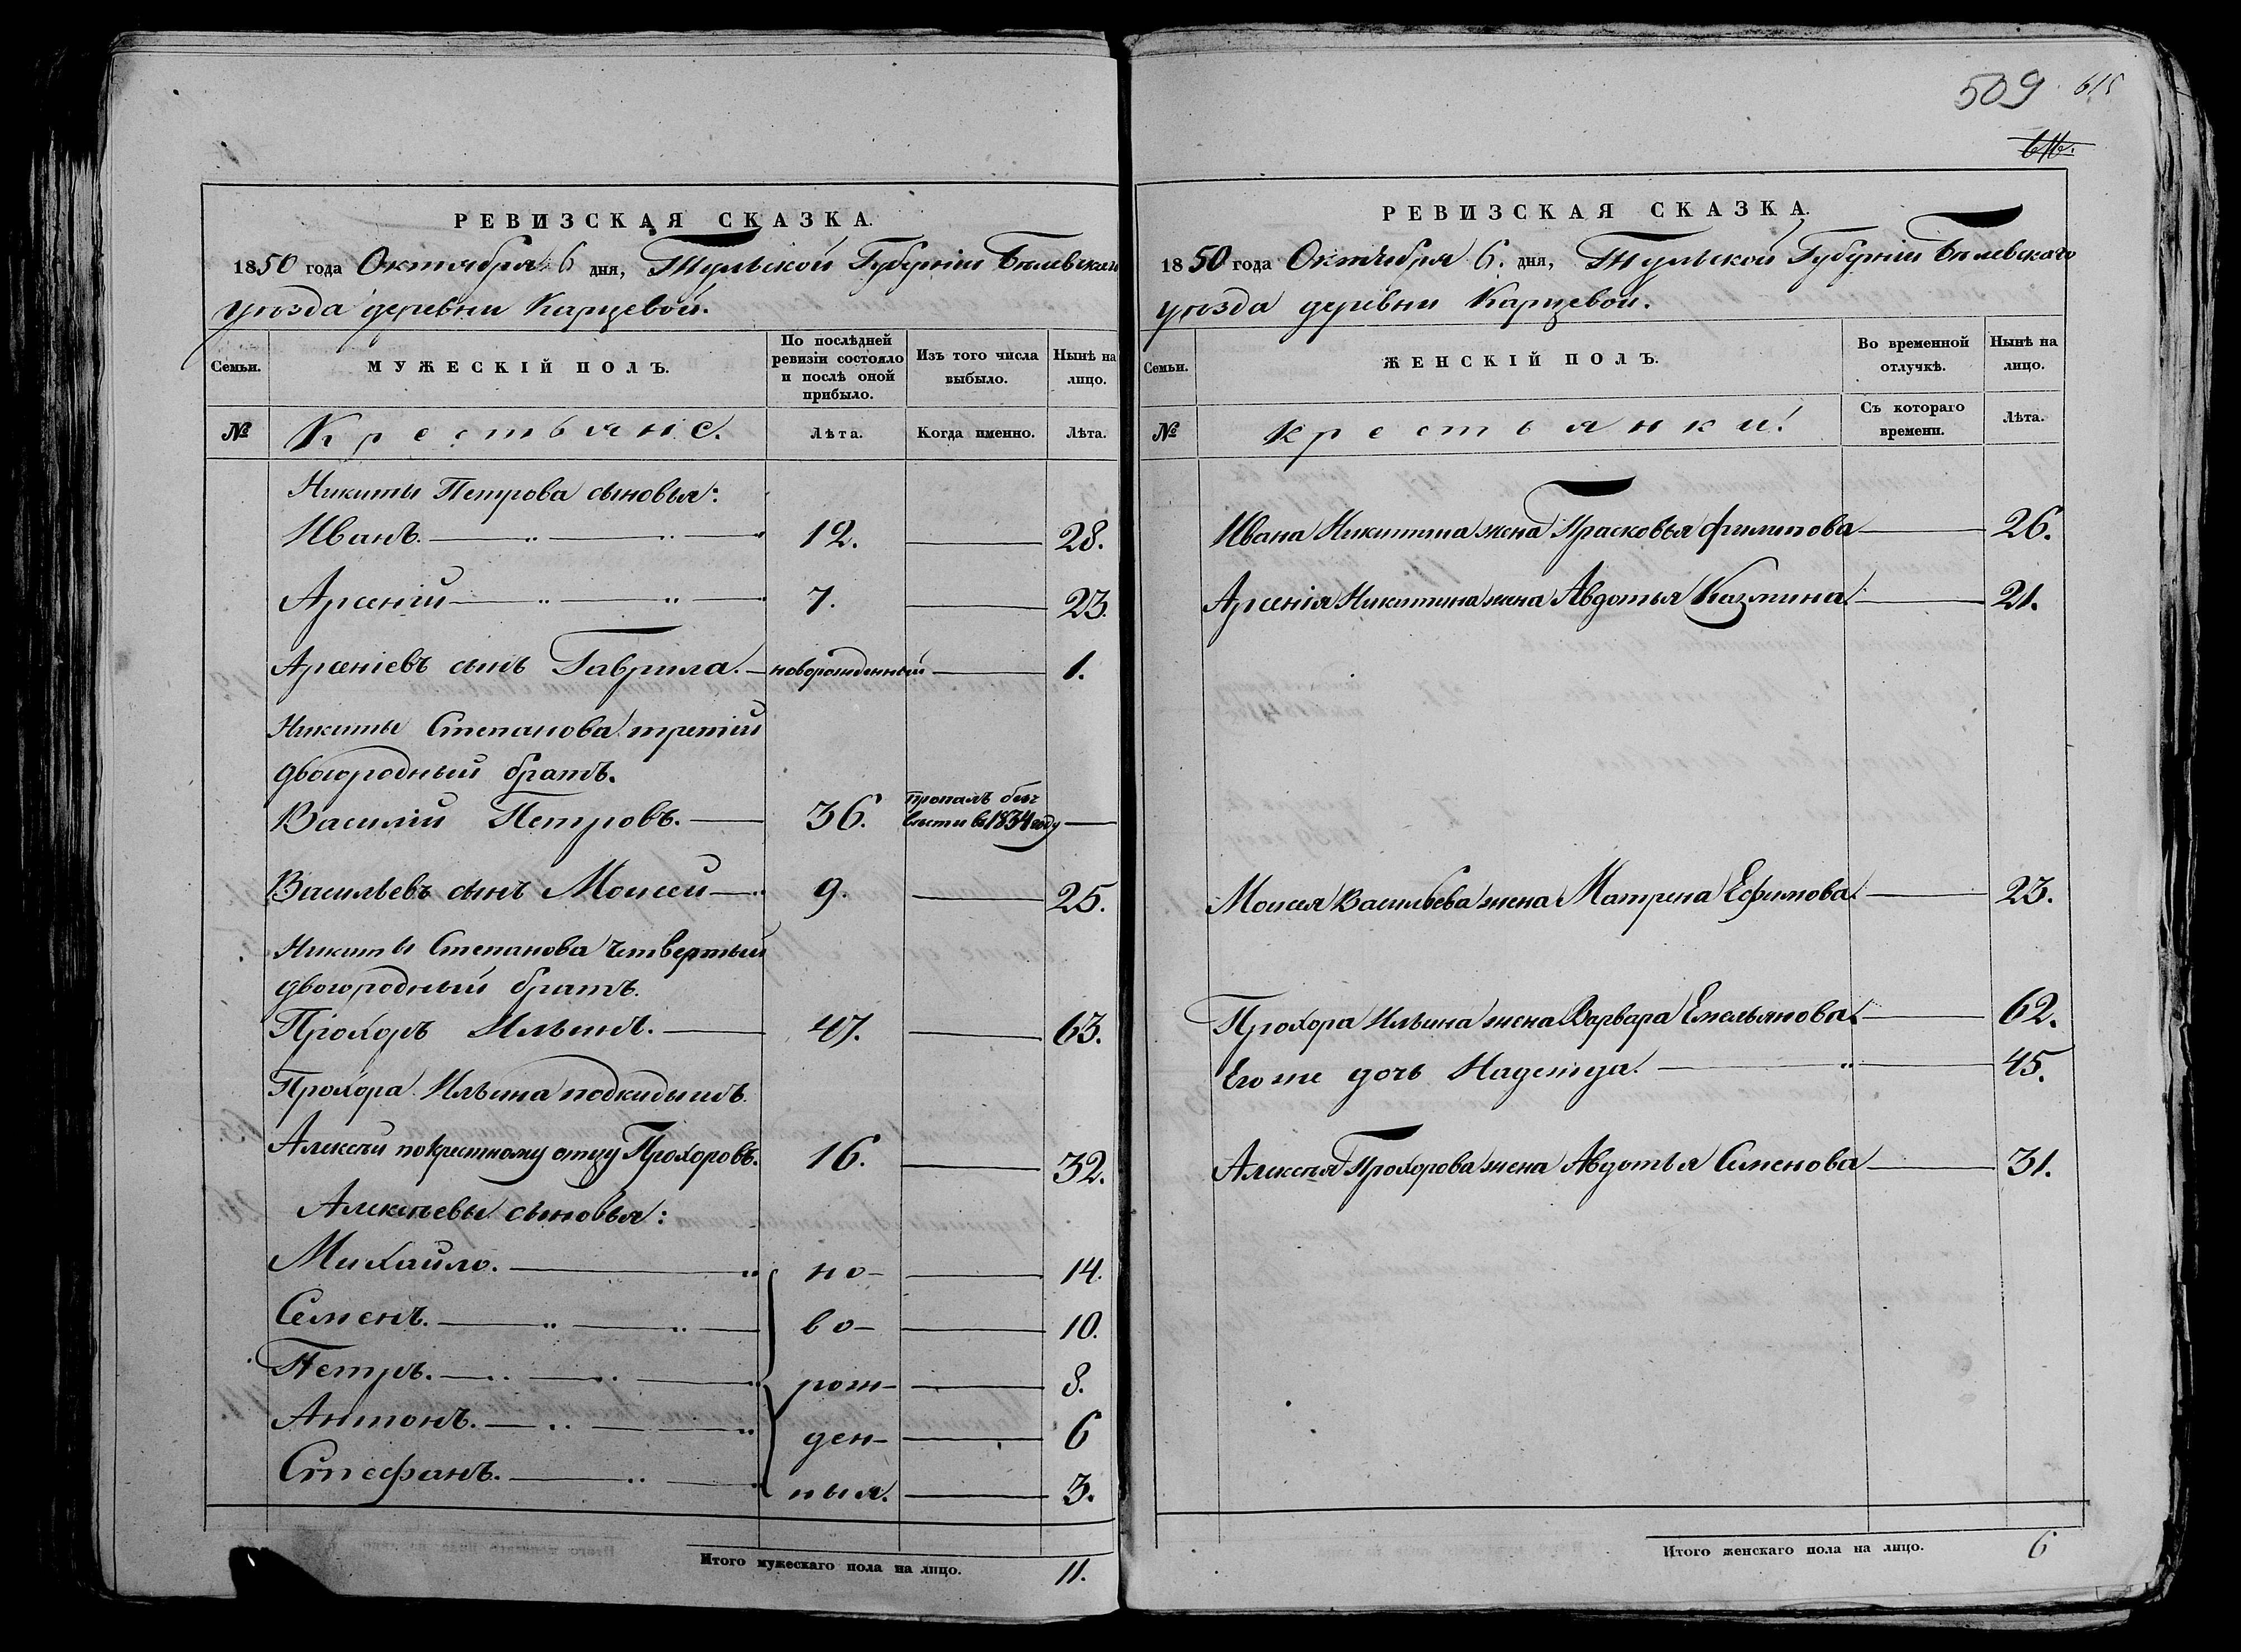 РЕВИЗСКАЯ СКАЗКА.
1850 года Октября 6 дня, Тульской Губерніи Бѣлевскаго
уѣзда деревни Карцевой.
Семьи.
МУЖЕСКІЙ ПОЛЪ.
По послѣдней
ревизіи состояло
и послѣ оной
прибыло.
Изъ того числа
выбыло.
Нынѣ на
лицо.
№
Крестьяне.
Лѣта.
Когда именно.
Лѣта.
Никиты Петрова сыновья:
Иванъ. 12. 28.
Арсеній 7. 23.
Арсеніевъ сынъ Гаврила. новорожденный 1.
Никиты Степанова третій
двоюродный братъ.
Василій Петровъ. 36. пропалъ безъ
вѣсти въ 1834 году
Васильевъ сынъ Моисей 9. 25.
Никиты Степанова четвертый
двоюродный братъ.
Прохоръ Ильинъ. 47. 63.
Прохора Ильина подкидышъ
Алексѣй по крестному отцу Прохоровъ. 16. 32.
Алексѣевы сыновья:
Михайло. но- 14.
Семенъ. во- 10.
Петръ. рож- 8.
Антонъ. ден- 6
Стефанъ. ныя. 3.
Итого мужескаго пола на лицо. 11.
509 615
616.
РЕВИЗСКАЯ СКАЗКА.
1850 года Октября 6. дня, Тульской Губерніи Бѣлевскаго
уѣзда деревни Карцевой.
Семьи.
ЖЕНСКІЙ ПОЛЪ.
Во временной
отлучкѣ.
Нынѣ на
лицо.
№
Крестьянки.
Съ котораго
времени.
Лѣта.
Ивана Никитина жена Прасковья Филипова 26.
Арсенія Никитина жена Авдотья Казмина. 21.
Моисея Васильева жена Матрена Ефимова. 23.
Прохора Ильина жена Варвара Емельянова. 62.
Его же дочь Надежда. 45.
Алексѣя Прохорова жена Авдотья Семенова 31.
Итого женскаго пола на лицо. 6